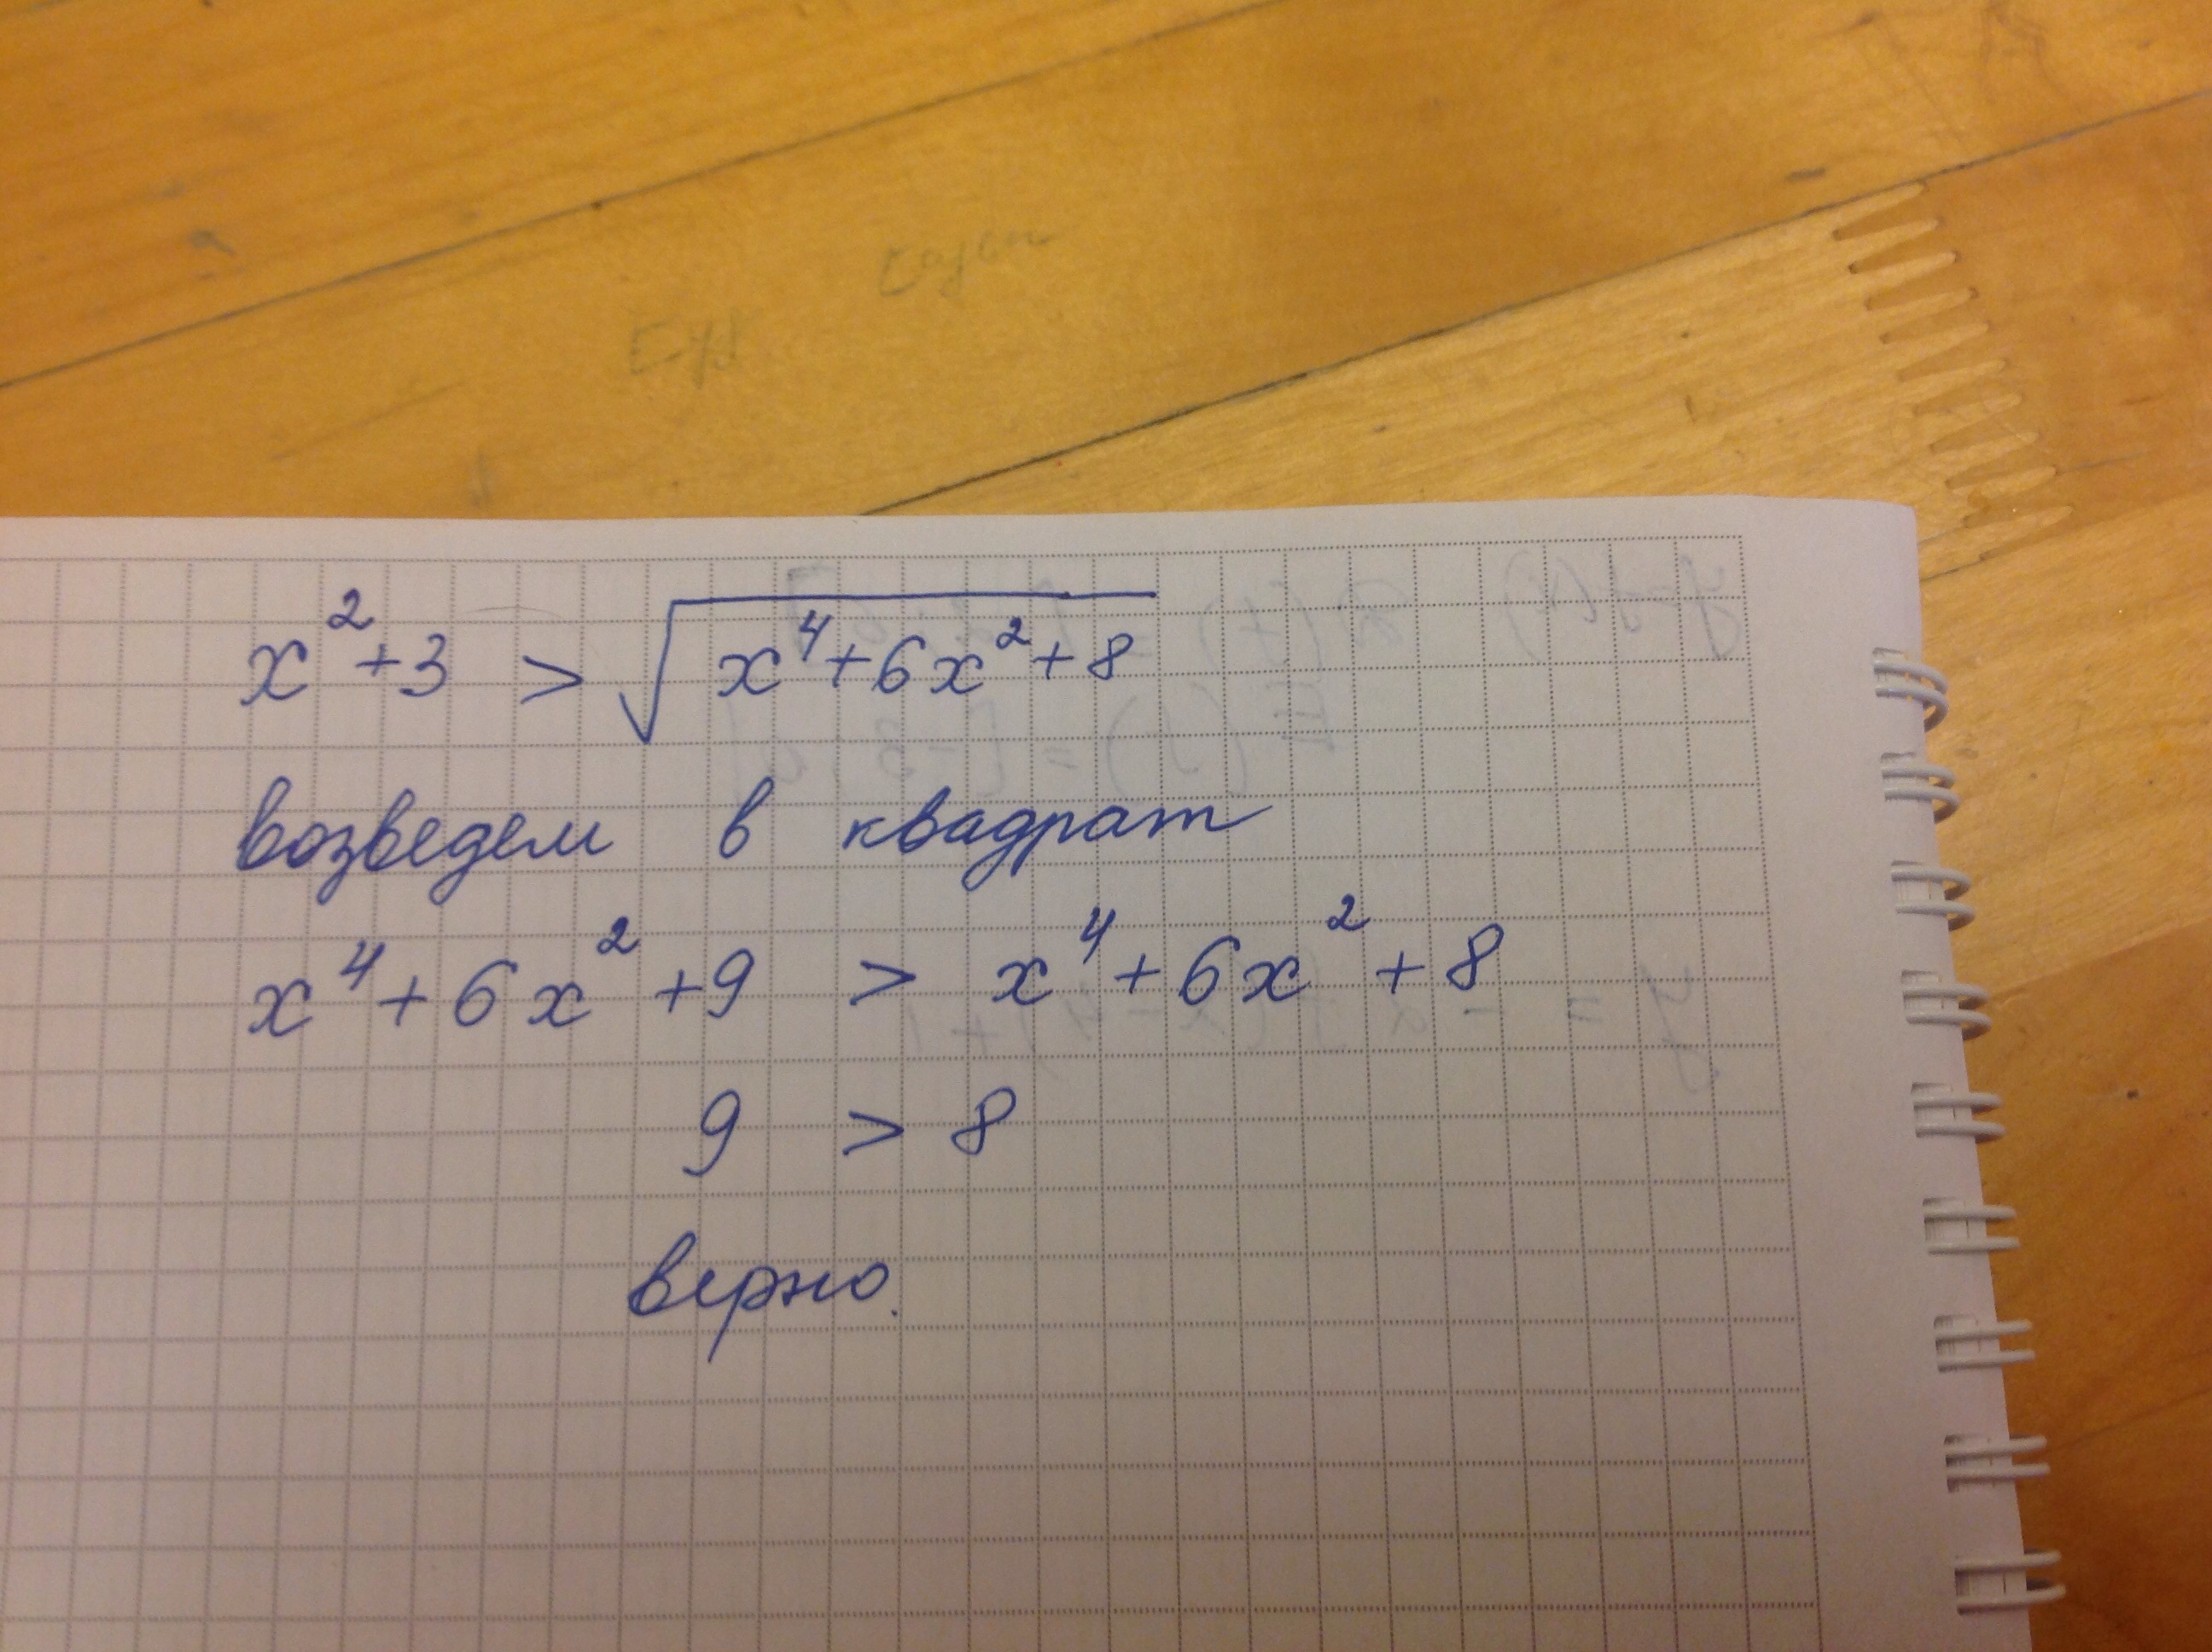 x² + 3 > √(x⁴ + 6x² + 8)
возведем в квадрат
x⁴ + 6x² + 9 > x⁴ + 6x² + 8
9 > 8
верно.